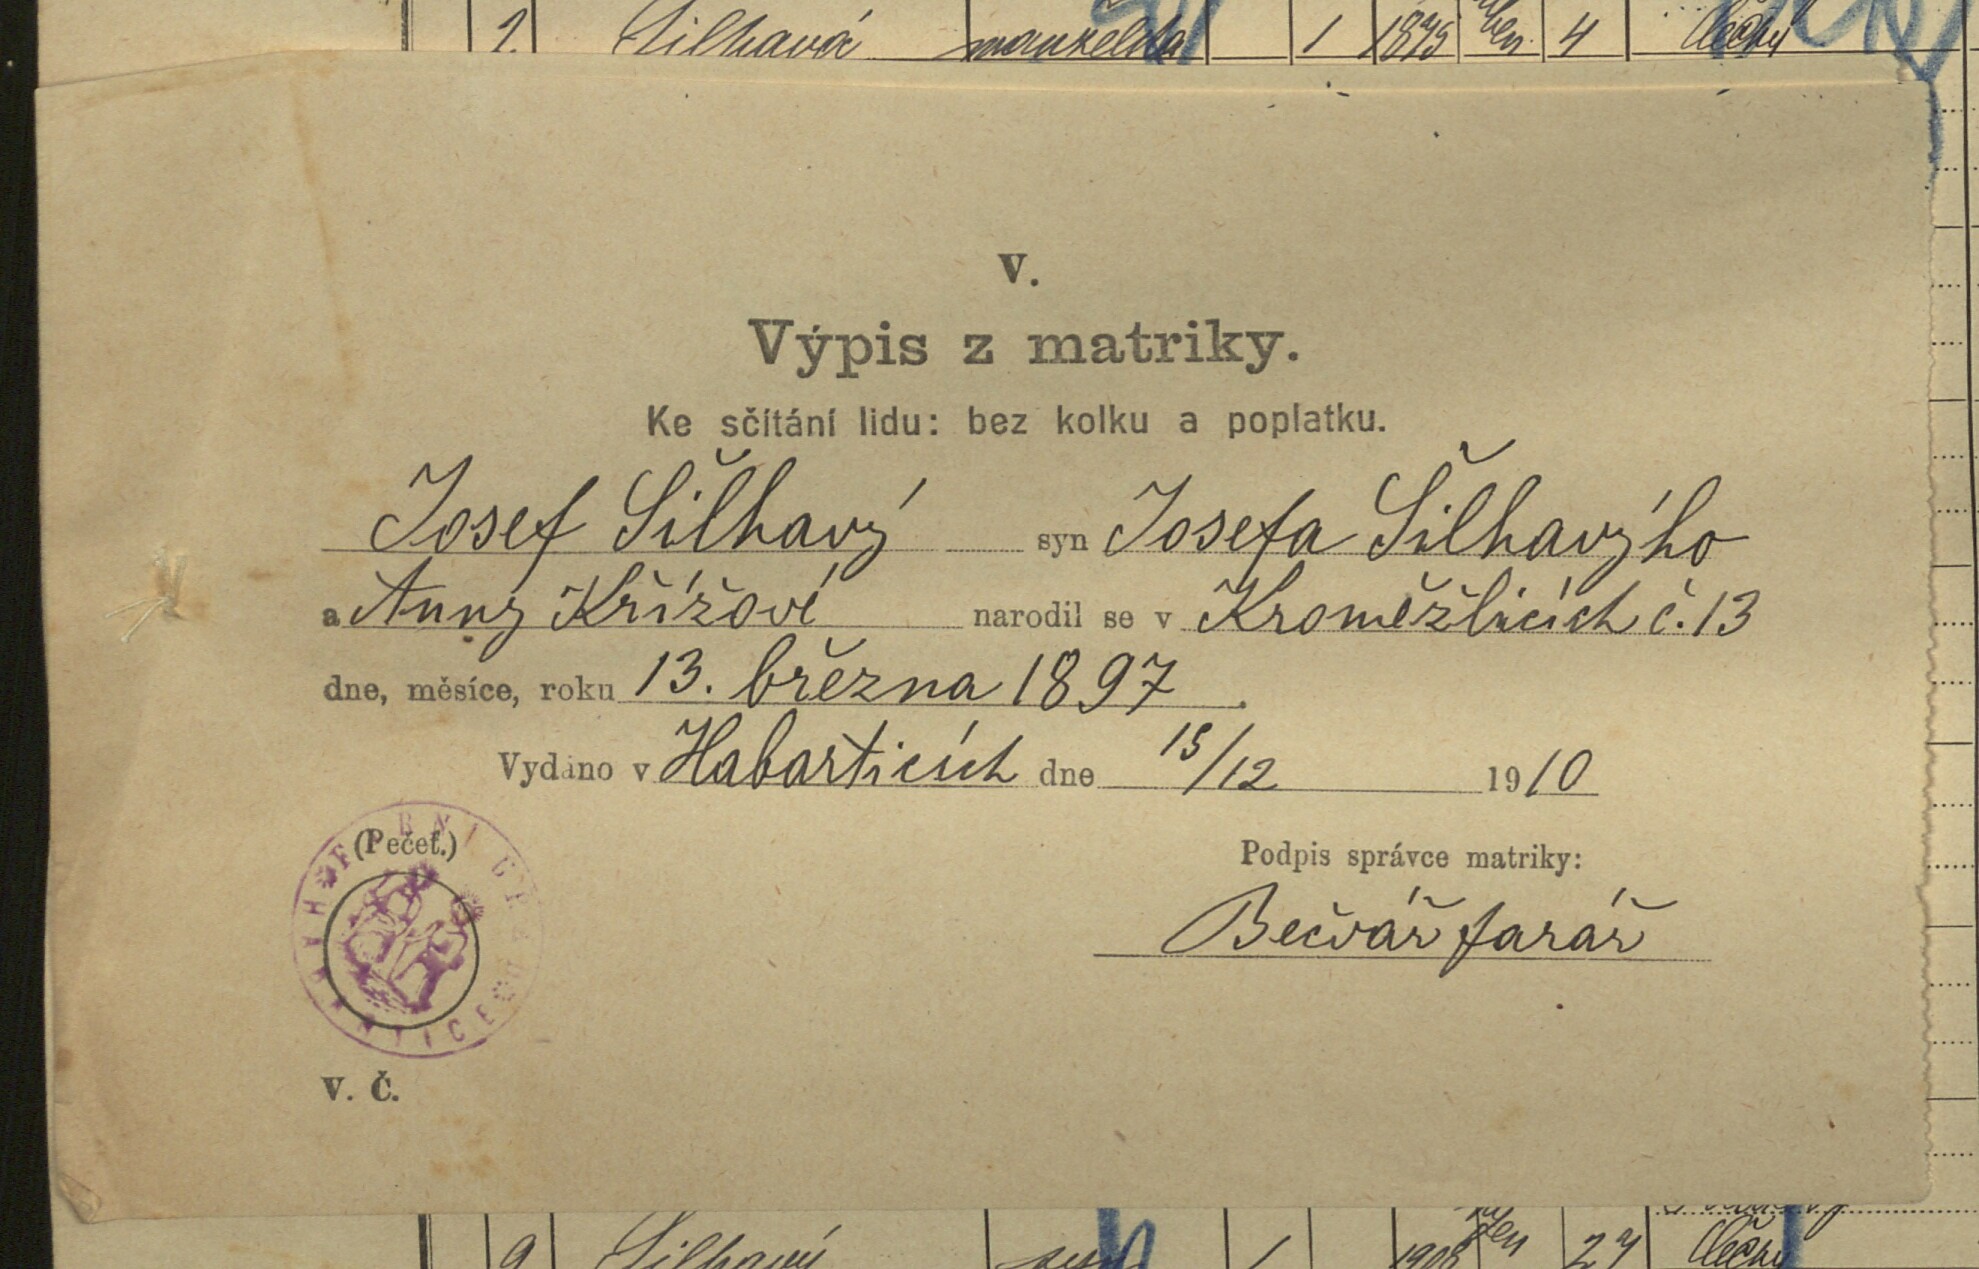 2 Šilhavá manželka 1 1875 4 Čechy
V.
Výpis z matriky.
Ke sčítání lidu: bez kolku a poplatku.
Josef Šilhavý syn Josefa Šilhavýho
a Anny Křížové narodil se v Kroměžlicích č. 13
dne, měsíce, roku 13. března 1897.
Vydáno v Habarticích dne 15/12 1910
(Pečeť.)
Podpis správce matriky:
Bečvář farář
V. Č.
9 Šilhavý syn 1 1908 27 Čechy